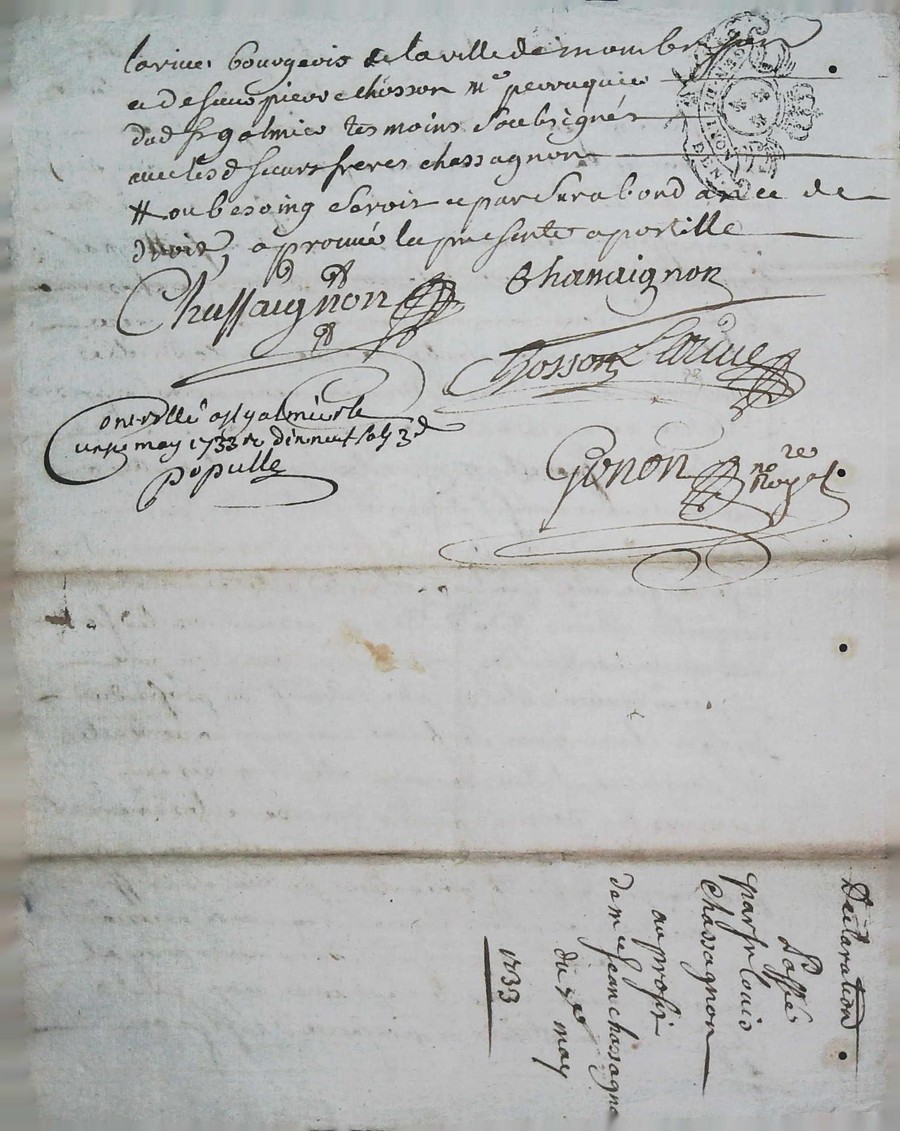 larive bourgeois de la ville de mombrison
et de sieur pierre chosson me perruquier
dud st galmier tesmoins soubsignés
avec lesd sieurs freres chassagnon
# ou besoing seroit et par surabondance de
droit, aprouvé la presente apostille
Chassaignon
Chanaignon
Chosson Larive
Gonon
no re
Royal
Controllé a st galmier le
may 1733 R dix neuf sols 3 d
popülle
GEN DE LION
Declaration
passée
par sr louis
Chassagnon
au profit
de me Jean chassagn
du may
1733